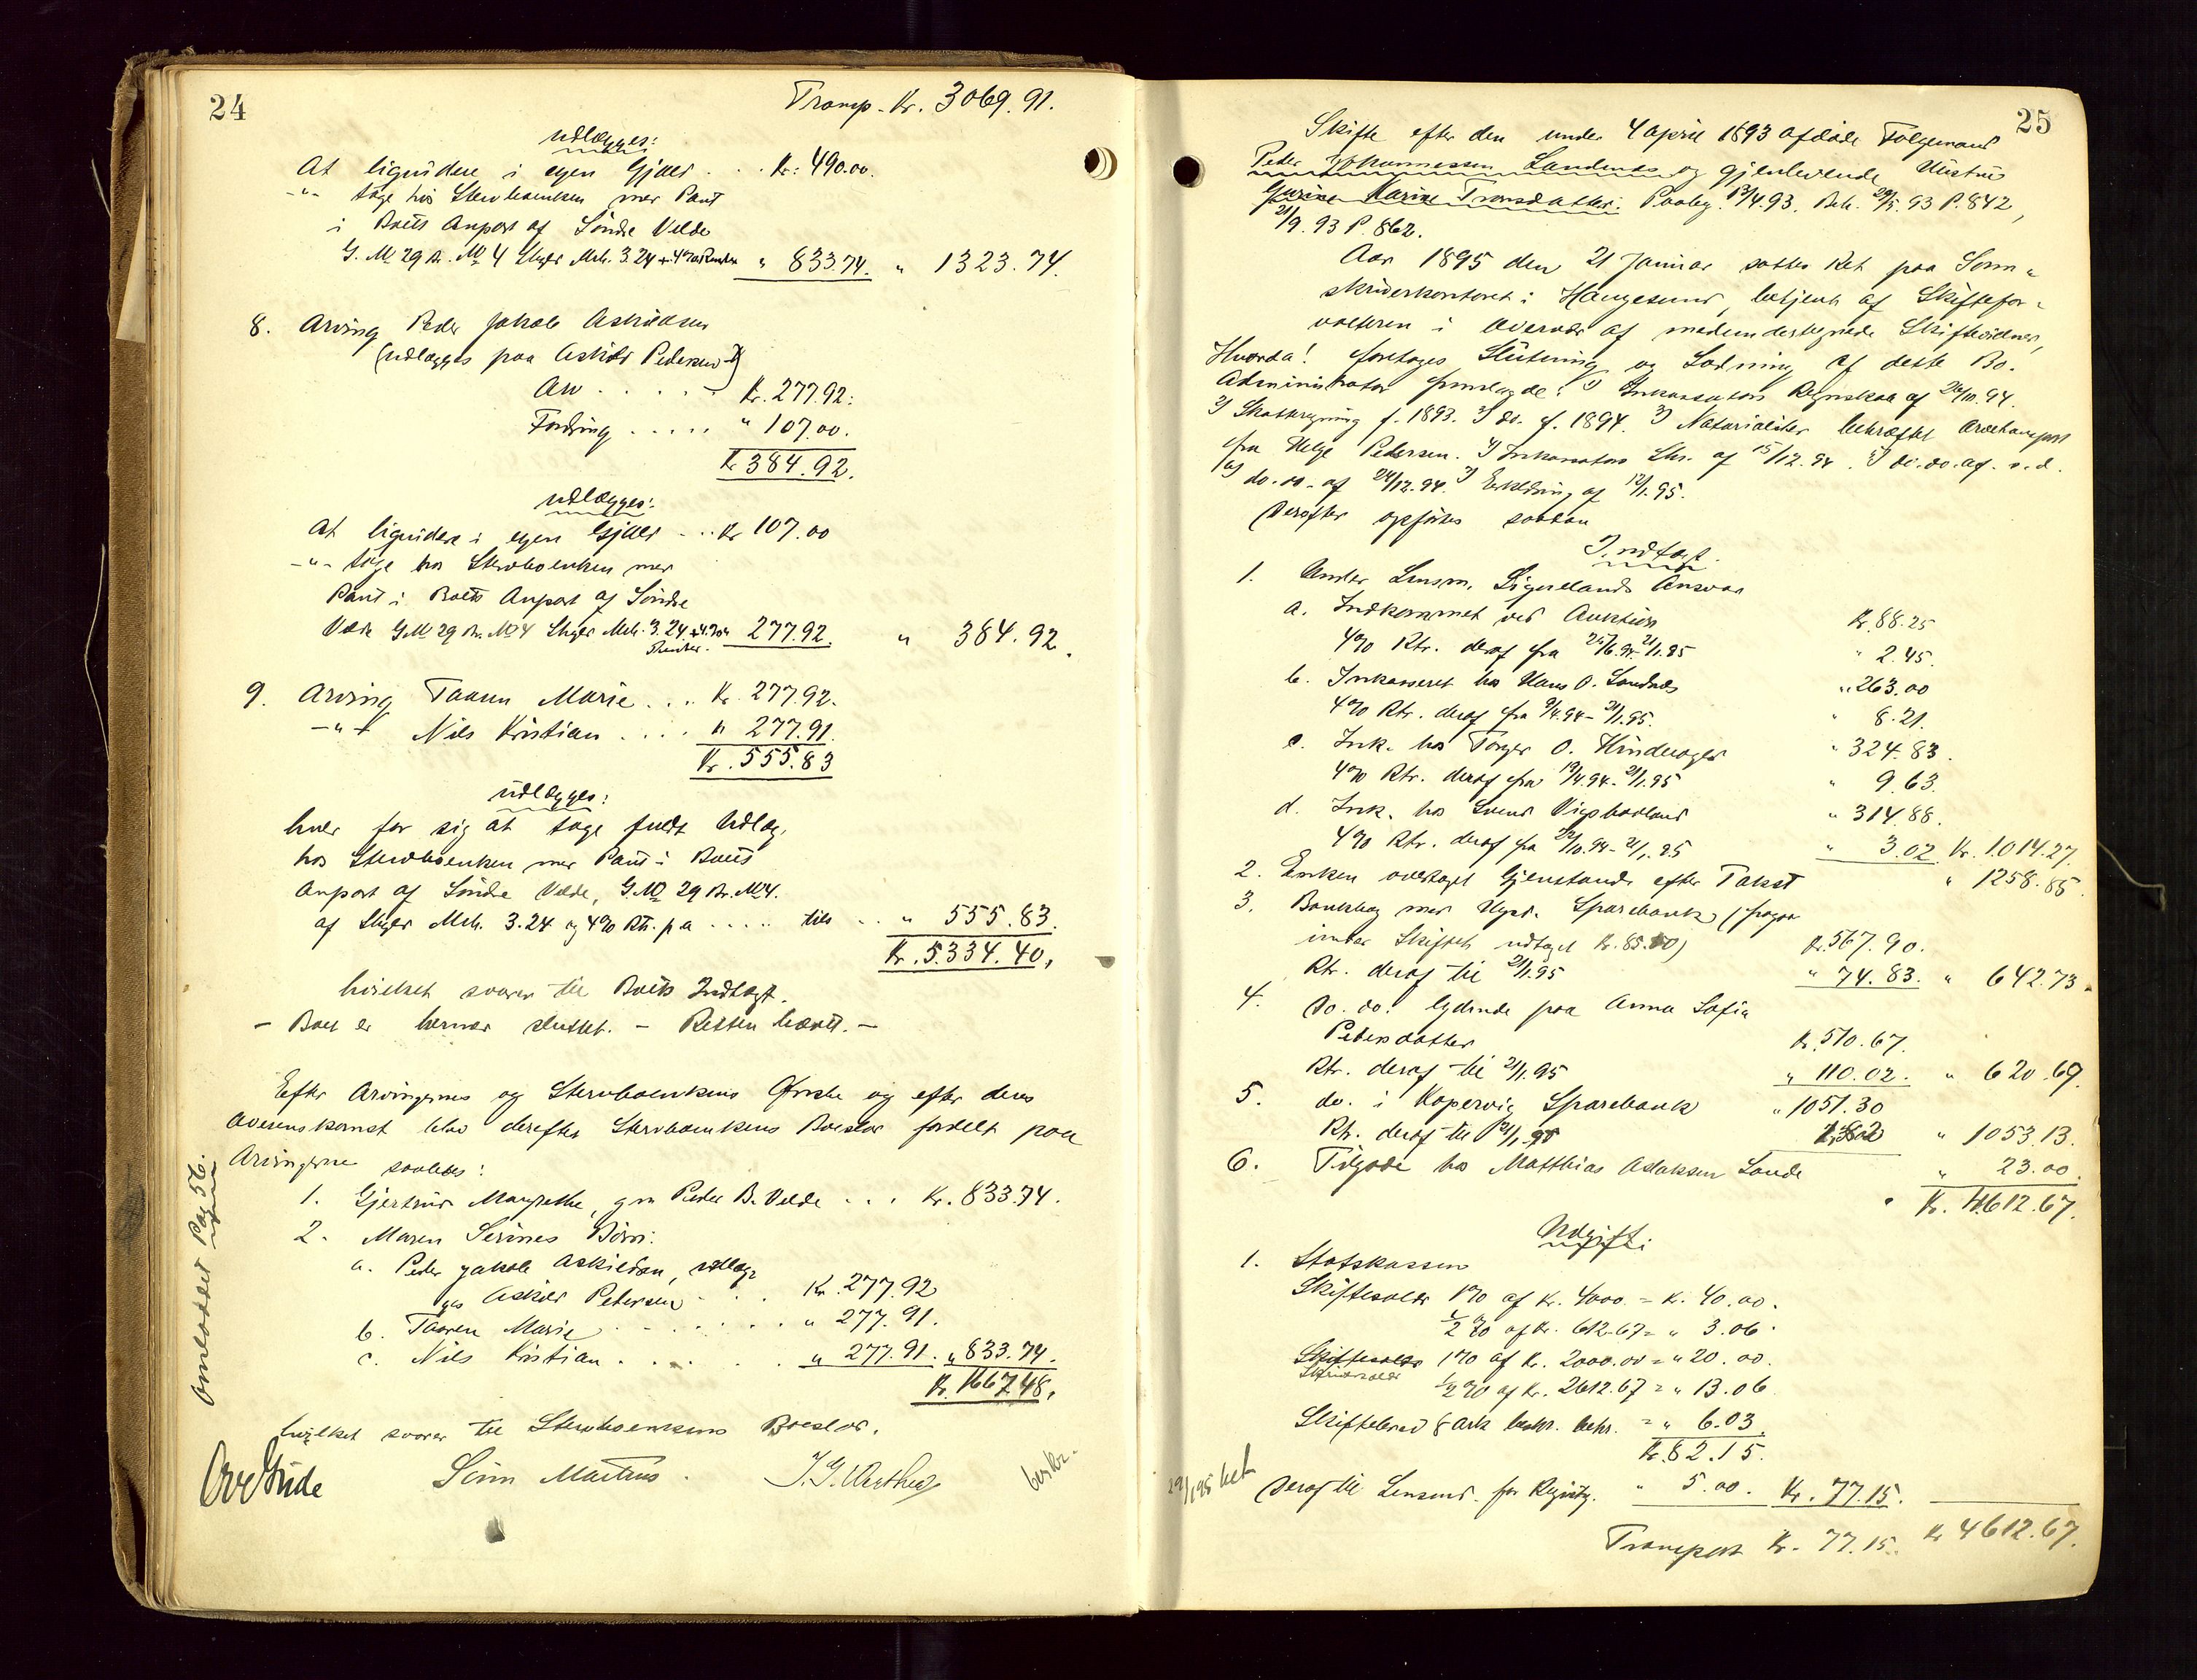 24
Transp. Kr. 3069.91.
udlægges:
At liquidere i egen Gjæld . . . Kr. 490.00.
-"- tage hos Stervboenken mer Pant
i Boets Anpart af Söndre Velde
G. No 29 Br. No 4 Skyld Mrk. 3.24 + 4% Renter " 833.74. " 1323.74.
8. Arving Peder Jakob Askildsen
(udlægges paa Askild Pedersen)
Arv . . . . . Kr. 277.92.
Fordring . . . . . " 107.00.
Kr. 384.92.
udlægges:
At liquidere i egen Gjæld . . . Kr 107.00
-"- tage hos Stervboenken mer
Pant i Boets Anpart af Söndre
Velde G. No 29 Br. No 4 Skyld Mrk. 3.24 + 4% Renter. 277.92. " 384.92.
9. Arving Taann Marie . . . Kr. 277.92.
-"- Nils Kristian . . . . " 277.91.
Kr. 555.83
udlægges:
hver for sig at tage fuldt Udlæg
hos Stervboenken mer Pant i Boets
Anpart af Söndre Velde, G. No 29 Br. No 4.
af Skyld Mrk. 3.24 og 4% Rtr. p a . . . . . tils . . " 555.83.
Kr. 5.334.40,
hvilket svarer til Boets Indtægt.
- Boet er hermed sluttet. - Retten hævet. -
Efter Arvingernes og Stervboenkens Ønske og efter deres
Overenskomst blev derefter Stervboenkens Boeslod fordelt paa
Arvingerne saaledes:
1. Gjertrud Margrethe, gm Peder B. Velde . . . Kr. 833.74.
2. Maren Serines Börn:
a. Peder Jakob Askildsen, udlæg-
ges Askild Pedersen . . . Kr. 277.92
b. Taaren Marie . . . . . . " 277.91.
c. Nils Kristian . . . . . . " 277.91. " 833.74.
Kr. 1667.48,
hvilket svarer til Stervboenkens Boeslod.
Omloddet Pag 56.
Ove Gude Sören Martens. beskr.
25
Skifte efter den under 4 April 1893 afdöde Fölgemand
Peder Johannessen Sandnes og gjenlevende Hustru
Gurine Karine Tronsdatter. Paabeg. 13/4.93. Beh. 29/5.93 P. 842,
21/9.93 P. 862.
Aar 1895 den 21 Januar sattes Ret paa Soren-
skriverkontoret i Haugesund, betjent af Skiftefor-
valteren i Overvær af medundertegnede Skiftevidner,
Hvorda! foretoges Slutning og Lodning af dette Bo.
Administrator fremlagde: 1) Inkassators Regnskab af 26/10.94.
2) Skatteregning f. 1893. 3) do. f. 1894. 3) Notarialiter bekræftet
fra Helge Pedersen. Inkassators Skr. af 15/12.94. do. do. af s. d.
do. do. af 24/12.94. Erklæring af 12/1.95.
Derefter opförtes saadan
Indtægt.
1. Under Lensm. Sigvelands Ansvar
a. Indkommet ved Auktion Kr. 88.25
4% Rtr. deraf fra 21/1.95 " 2.45.
b. Inkasseret hos Hans O. Sandnes " 263.00
4% Rtr. deraf fra 9/4.94 - 21/1.95. " 8.21.
c. Ink. hos Torger O. Hinderager " 324.83.
4% Rtr. deraf fra 19/4.94 - 21/1.95 " 9.63.
d. Ink. hos Svend Vigsbovland " 314.88.
4% Rtr. deraf fra 22/10.94 - 21/1.95 " 3.02. Kr. 1.014.27.
2. Enken overtaget Gjenstande efter Takst " 1258.85.
3. Bankbog mer Sparebank (forpaa
under Skiftet udtaget Kr. 85.00) Kr. 567.90.
Rtr. deraf til 21/1.95 " 74.83. " 642.73.
4. Do. do. lydende paa Anna Sofia
Pedersdatter Kr. 510.67.
Rtr. deraf til 21/1.95 " 110.02. " 620.69.
5. do. i Kopervig Sparebank " 1051.30
Rtr. deraf til 21/1.95 " 1053.13.
6. Tilgode hos Matthias Adaksen Sande " 23.00.
Kr. 4612.67.
Udgift:
1. Statskassen
Skiftesold 1% af Kr. 4000. = Kr. 40.00.
1/2% af Kr. 612.67 = " 3.06.
Skiftesold 1% af Kr. 2000.00 = " 20.00.
Skriversold 1/2% af Kr. 2612.67 = " 13.06.
Skiftebrev 8 ark beskr. behr. = " 6.03.
Kr. 82.15.
deraf til Lensmd. for Registrg. " 5.00. Kr. 77.15.
Transport Kr. 77.15. Kr 4612.67.